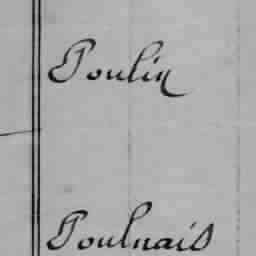 Poulin
Poulnais